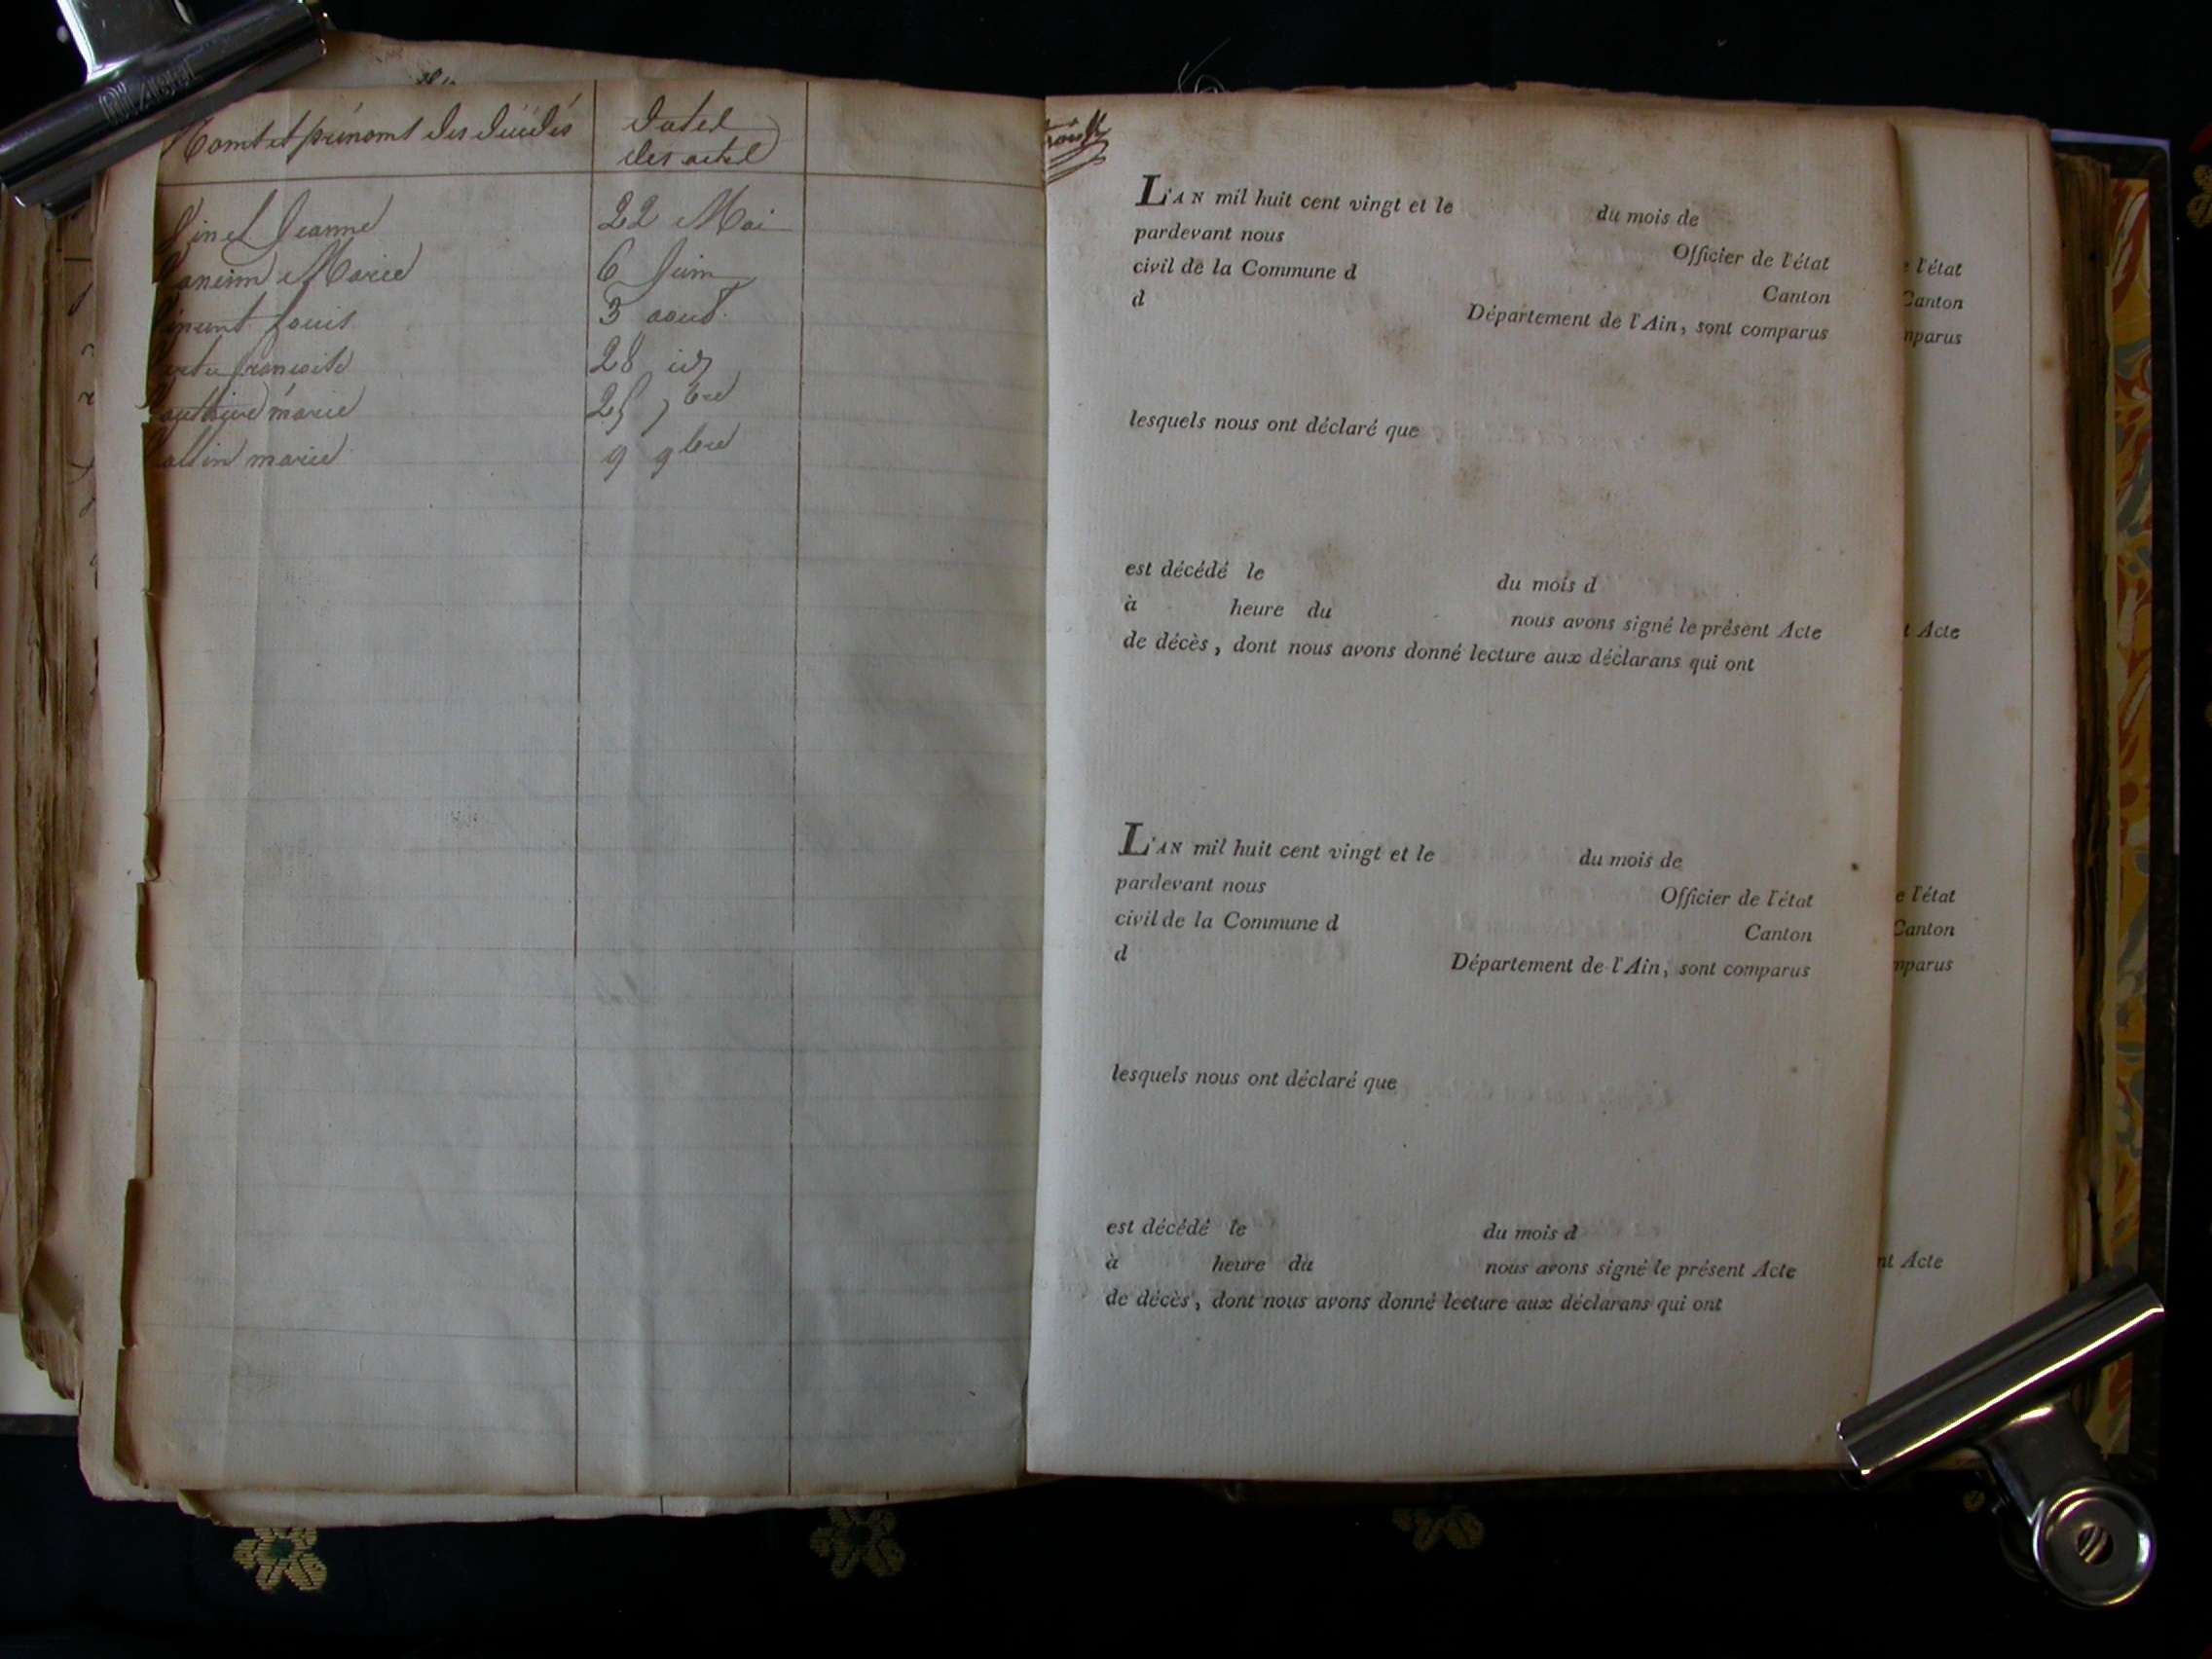 Noms et prénoms des décédés
dates
des actes
Jeanne 22 Mai
Marie 6 Juin
Louis 3 aout
françoise 28 id
marie 25 7bre
marie 9 9bre
L'AN mil huit cent vingt et le du mois de
pardevant nous Officier de l'état
civil de la Commune d Canton
d Département de l'Ain, sont comparus
lesquels nous ont déclaré que
est décédé le du mois d
à heure du nous avons signé le présent Acte
de décès, dont nous avons donné lecture aux déclarans qui ont
L'AN mil huit cent vingt et le du mois de
pardevant nous Officier de l'état
civil de la Commune d Canton
d Département de l'Ain, sont comparus
lesquels nous ont déclaré que
est décédé le du mois d
à heure du nous avons signé le présent Acte
de décès, dont nous avons donné lecture aux déclarans qui ont
e l'état
Canton
mparus
t Acte
e l'état
Canton
mparus
nt Acte